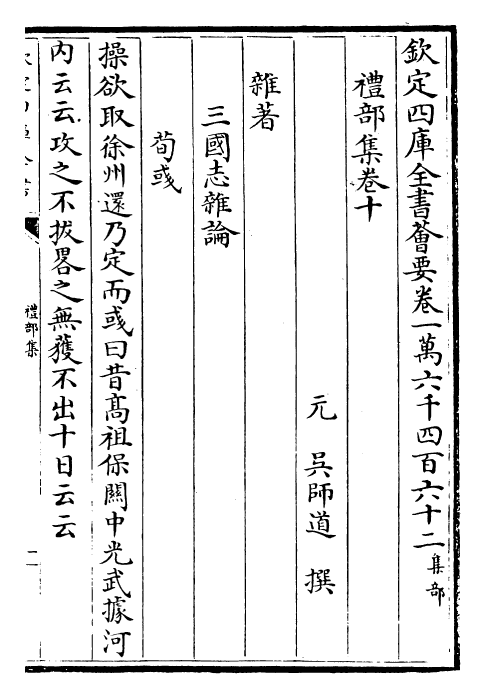 欽定四庫全書薈要卷一萬六千四百六十二集部
禮部集卷十
元　吳師道　撰
雜著
三國志雜論
荀彧
操欲取徐州還乃定而彧曰昔髙祖保關中光武據河
内云云攻之不拔畧之無獲不出十日云云
禮部集